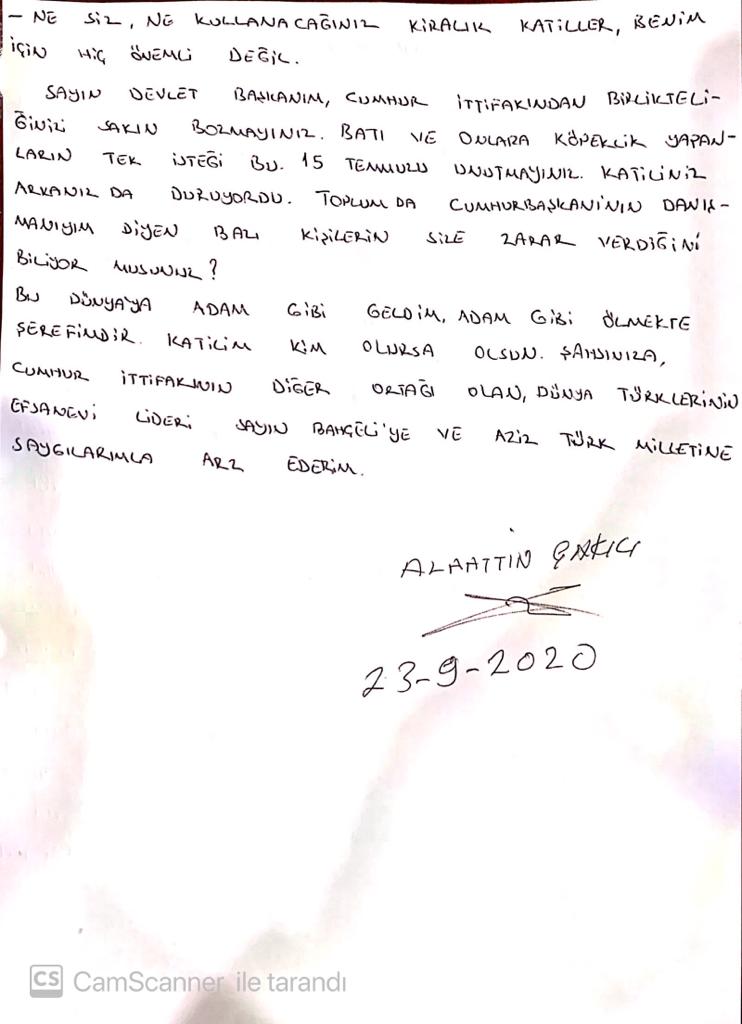 - NE SİZ, NE KULLANACAĞINIZ KİRALIK KATİLLER, BENİM
İÇİN HİÇ ÖNEMLİ DEĞİL.
SAYIN DEVLET BAŞKANIM, CUMHUR İTTİFAKINDAN BİRLİKTELİ-
ĞİNİZİ SAKIN BOZMAYINIZ. BATI VE ONLARA KÖPEKLİK YAPAN-
LARIN TEK İSTEĞİ BU. 15 TEMMUZU UNUTMAYINIZ. KATİLİNİZ
ARKANIZ DA DURUYORDU. TOPLUM DA CUMHURBAŞKANI'NIN DANIŞ-
MANIYIM DİYEN BAZI KİŞİLERİN SİZE ZARAR VERDİĞİNİ
BİLİYOR MUSUNUZ?
BU DÜNYAYA ADAM GİBİ GELDİM, ADAM GİBİ ÖLMEKTE
ŞEREFİMDİR. KATİLİM KİM OLURSA OLSUN. ŞAHSINIZA,
CUMHUR İTTİFAKININ DİĞER ORTAĞI OLAN, DÜNYA TÜRKLERİNİN
EFSANEVİ LİDERİ SAYIN BAHÇELİ'YE VE AZİZ TÜRK MİLLETİNE
SAYGILARIMLA ARZ EDERİM.
ALAATTİN ÇAKICI
23-9-2020
CS CamScanner ile tarandı